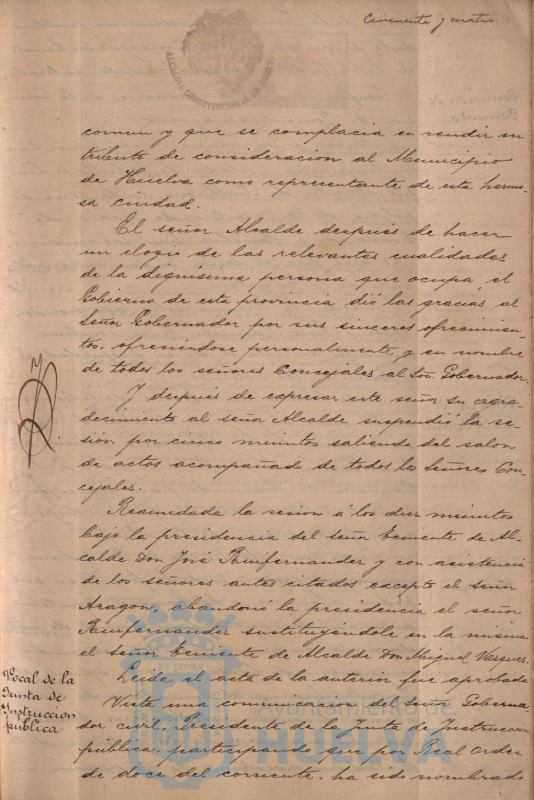 Cincuenta y cuatro
ALCALDIA CONSTITUCIONAL DE HUELVA
comun y que se complacia en rendir un
tributo de consideracion al Municipio
de Huelva como representante de esta hermo-
sa ciudad.
El señor Alcalde despues de hacer
un elogio de las relevantes cualidades
de la dignisima persona que ocupa el
Gobierno de esta provincia dió las gracias al
Señor Gobernador por sus sinceros ofrecimien-
tos, ofreciéndose personalmente y en nombre
de todos los señores Concejales al Sor. Gobernador.
Y despues de expresar este señor su agra-
decimiento al señor Alcalde suspendió la se-
sión por cinco minutos saliendo del salon
de actos acompañado de todos los Señores Con-
cejales.
Reanudada la sesion á los diez minutos
bajo la presidencia del señor Teniente de Al-
calde Don José Ruifernandez y con asistencia
de los señores antes citados excepto el señor
Aragon, abandonó la presidencia el señor
Ruifernandez sustituyéndole en la misma
el señor Teniente de Alcalde Don Miguel Vasquez.
Leida el acta de la anterior fué aprobada
Vocal de la
Junta de
Instruccion
pública
Vista una comunicacion del Sor. Goberna
dor civil, Presidente de la Junta de Instruccion
pública, participando que por Real Orden
de doce del corriente, ha sido nombrado
Ayuntamiento de
HUELVA